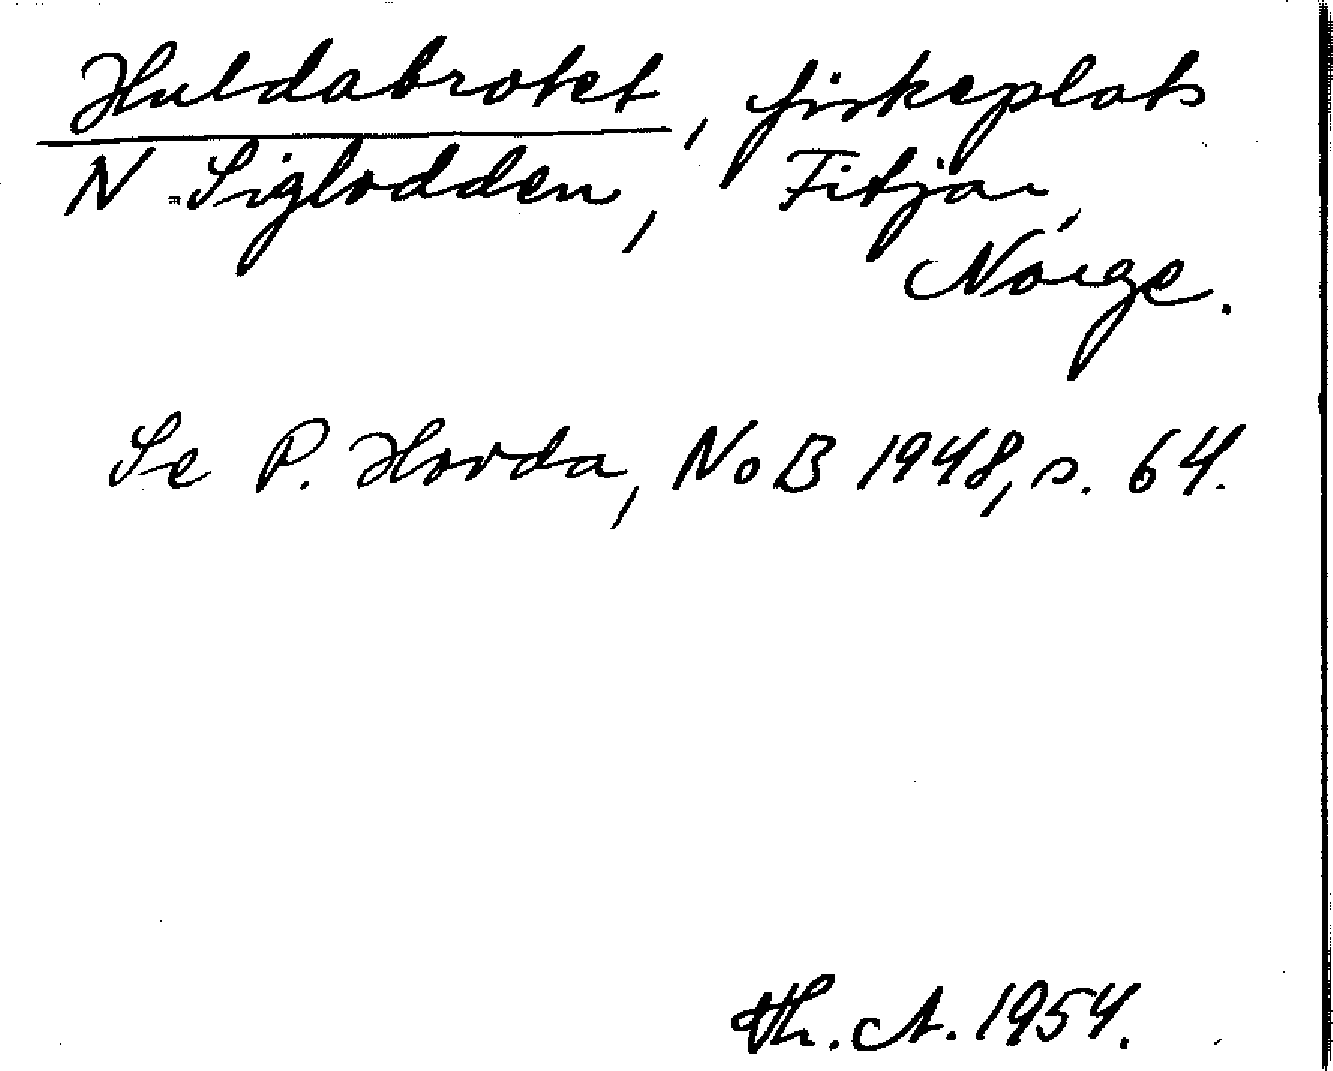 Huldabrotet, fiskeplats
N Siglodden, Fitjar,
Norge.
Se P. Hovda, NoB 1948, s. 64.
Th. A. 1954.